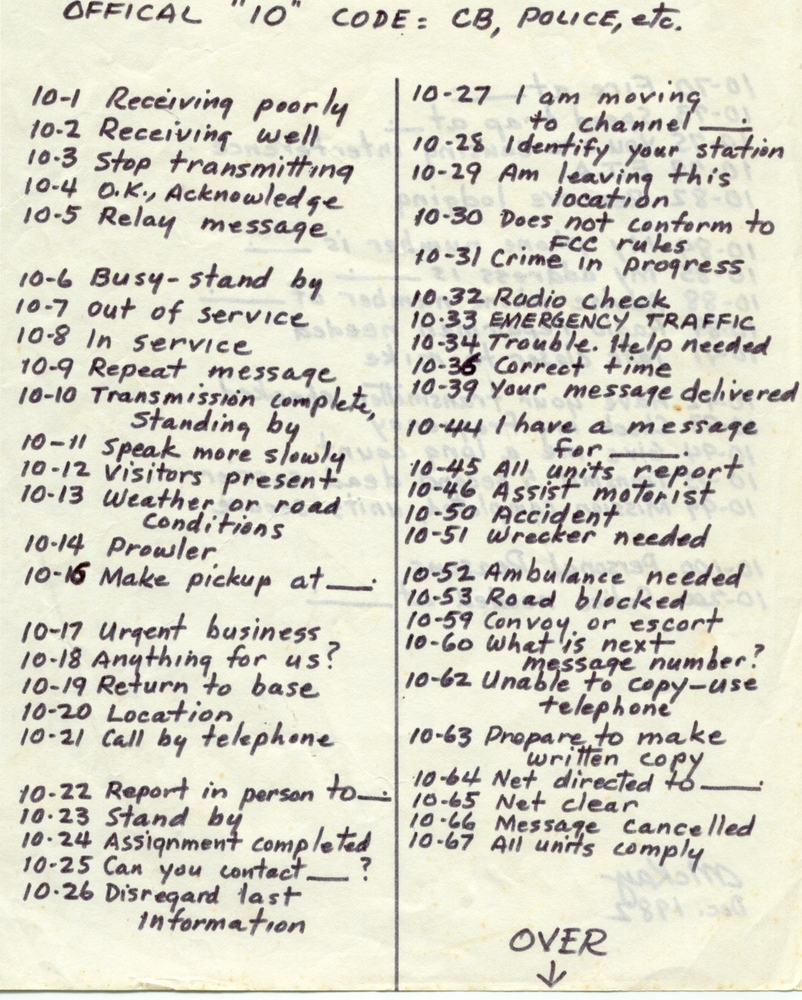 OFFICAL "10" CODE: CB, POLICE, etc.
10-1 Receiving poorly
10-2 Receiving well
10-3 Stop transmitting
10-4 O.K., Acknowledge
10-5 Relay message
10-6 Busy-stand by
10-7 Out of service
10-8 In service
10-9 Repeat message
10-10 Transmission complete,
Standing by
10-11 Speak more slowly
10-12 Visitors present
10-13 Weather or road
Conditions
10-14 Prowler
10-16 Make pickup at ___.
10-17 Urgent business
10-18 Anything for us?
10-19 Return to base
10-20 Location
10-21 Call by telephone
10-22 Report in person to ___.
10-23 Stand by
10-24 Assignment completed
10-25 Can you contact ___ ?
10-26 Disregard last
Information
10-27 I am moving
to channel ___.
10-28 Identify your station
10-29 Am leaving this
location
10-30 Does not conform to
FCC rules
10-31 Crime in progress
10-32 Radio check
10-33 EMERGENCY TRAFFIC
10-34 Trouble. Help needed
10-36 Correct time
10-39 Your message delivered
10-44 I have a message
for ___.
10-45 All units report
10-46 Assist motorist
10-50 Accident
10-51 Wrecker needed
10-52 Ambulance needed
10-53 Road blocked
10-59 Convoy or escort
10-60 What is next
message number?
10-62 Unable to copy-use
telephone
10-63 Prepare to make
written copy
10-64 Net directed to ___.
10-65 Net clear
10-66 Message cancelled
10-67 All units comply
OVER
↓